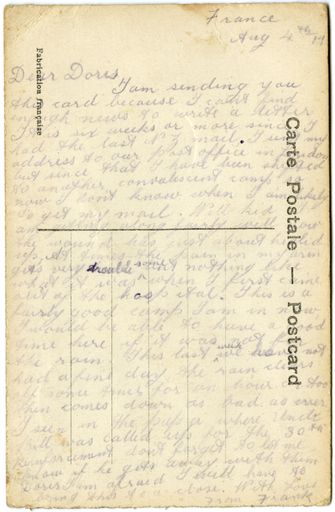 France
Aug 4th 17
Dear Doris
I am sending you
this card because I can't find
enough news to write a letter
It is six weeks or more since I
had the last N.Z mail. I sent my
address to our post office in London
but since that I have been shifted
to another convalescent camp so
now I don't know when I am likely
to get my mail. Well kid
the wound has just about healed
up. At I get some pain in my arm
gives very trouble but nothing like
what it was when I first came
out of the hospital. This is a
fairly good camp I am in now
I would be able to have a good
time here if it was not for
the rain. This last week has not
had a fine day the rain clears
off some times for an hour or
then comes down as bad as ever
I seen in the paper where Uncle
Bill was called up for the 30th
Reinforcement don't forget to let me
know if he gets away with them
Doris I am afraid I will have to
bring this to a close. With love
From Frank
Carte Postale — Postcard
Fabrication française